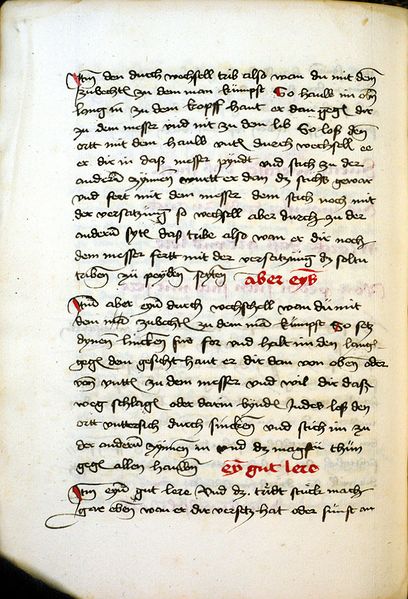 Itm den durch wechsell trib also wan du mit dem
zufechtn zu dem man kümpst So hauw im obn
lang in zu dem kopff haut er dan gegn dir
zu dem messer und nit zu dem lib So loß den
ortt mit dem hauw untn durch wechseln ee
er dir in daß messer pyndt und stich zu der
anderñ zymen wurtt er dan dz stichs gewar
und fert mit dem messer dem stich noch mit
der versatzung so wechsell aber durch zu der
anderñ sytn daß tribe also wan er dir noch
dem messer fertt mit der versatzung dz soltu
tribenn zu peydenn seytenn aber eyß
Vnd aber eyn durch wechschell wan du mit
dem mañ zufechtn zu dem mañ kümpst So setz
dynen lincken fuß for und halt im den lang
gegn dem gesicht haut er dir dem von oben oder
von untn zu dem messer und wil dir daß
weg schlagn oder darin byndn Indes loß den
ortt untersich durch sincken und stich im zu
der anderñ zymen in und dz magstu thun
gegn allen hauwen eyn gut lere
Itm eyn gut lere vnd dz trifft stuck mach
gar eben wan er dir versetz hat oder sunst an